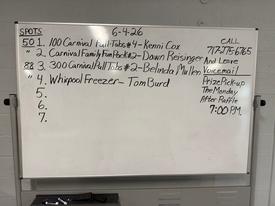 SPOTS 6-4-26
50 1. 100 Carnival Pull Tabs #4 - Kenni Cox
" 2. Carnival Family Fun Pack #2 - Dawn Reisinger
88 3. 300 Carnival Pull Tabs #2 - Belinda Mullen
" 4. Whirpool Freezer - Tom Burd
5.
6.
7.
CALL
717-275-6765
And Leave
Voicemail
Prize Pick-up
The Monday
After Raffle
7:00 P.M.